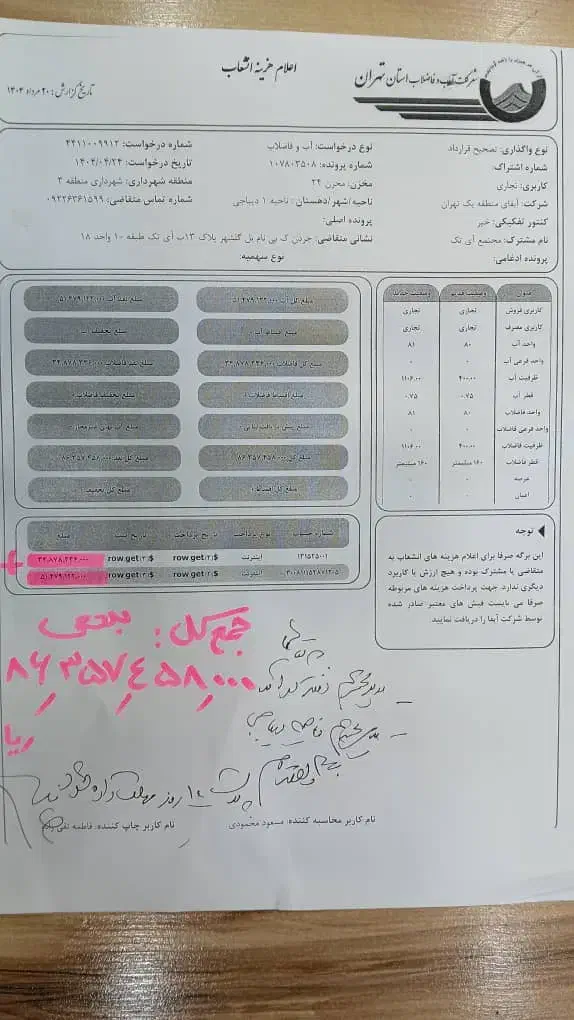 شرکت آب و فاضلاب استان تهران
اعلام هزینه انشعاب
تاریخ گزارش: ۲۰ مرداد ۱۴۰۴
نوع واگذاری: تصحیح قرارداد
شماره اشتراک:
کاربری: تجاری
شرکت: آبفای منطقه یک تهران
کنتور تفکیکی: خیر
نام مشترک: مجتمع آی تک
پرونده ادغامی:
نوع درخواست: آب و فاضلاب
شماره پرونده: ۱۰۷۸۰۳۵۰۸
مخزن: مخزن ۲۴
ناحیه/شهر/دهستان: ناحیه ۱ دیباجی
پرونده اصلی:
نشانی متقاضی: جردن ک بی نام بل گلشهر پلاک ۱۳ب آی تک طبقه ۱۰ واحد ۱۸
نوع سهمیه:
شماره درخواست: ۴۴۱۱۰۰۹۹۱۲
تاریخ درخواست: ۱۴۰۴/۰۴/۲۴
منطقه شهرداری: شهرداری منطقه ۳
شماره تماس متقاضی: ۰۹۲۲۶۳۶۱۵۹۹
عنوان وضعیت قدیم وضعیت جدید
کاربری فروش تجاری تجاری
کاربری مصرف تجاری تجاری
واحد آب ۸۰ ۸۱
واحد فرعی آب ۰ ۰
ظرفیت آب ۴۰۰.۰۰ ۱۱۰۶.۰۰
قطر آب ۰.۷۵ ۰.۷۵
واحد فاضلاب ۸۰ ۸۱
واحد فرعی فاضلاب ۰ ۰
ظرفیت فاضلاب ۴۰۰.۰۰ ۱۱۰۶.۰۰
قطر فاضلاب ۱۶۰ میلیمتر ۱۶۰ میلیمتر
عرصه ۰ ۰
اعیان ۰ ۰
مبلغ کل آب: ۵۱،۴۷۹،۱۲۲،۰۰۰
مبلغ نقد آب: ۵۱،۴۷۹،۱۲۲،۰۰۰
مبلغ اقساط آب: ۰
مبلغ تخفیف آب: ۰
مبلغ کل فاضلاب: ۳۴،۸۷۸،۳۳۶،۰۰۰
مبلغ نقد فاضلاب: ۳۴،۸۷۸،۳۳۶،۰۰۰
مبلغ اقساط فاضلاب: ۰
مبلغ تخفیف فاضلاب: ۰
مبلغ کل: ۸۶،۳۵۷،۴۵۸،۰۰۰
مبلغ کل نقد: ۸۶،۳۵۷،۴۵۸،۰۰۰
مبلغ کل اقساط: ۰
مبلغ کل تخفیف: ۰
توجه
این برگه صرفا برای اعلام هزینه های انشعاب به
متقاضی یا مشترک بوده و هیچ ارزش یا کاربرد
دیگری ندارد. جهت پرداخت هزینه های مربوطه
صرفا می بایست فیش های معتبر صادر شده
توسط شرکت آبفا را دریافت نمایید.
شماره حساب نوع پرداخت تاریخ پرداخت تاریخ ثبت مبلغ
۱۳۱۵۲۵۰۰۱ اینترنت row.get(۲)$ row.get(۳)$ ۳۴،۸۷۸،۳۳۶،۰۰۰
اینترنت row.get(۲)$ row.get(۳)$ ۵۱،۴۷۹،۱۲۲،۰۰۰
+
جمع کل: بدهی
۸۶,۳۵۷,۴۵۸,۰۰۰
ریال
نام کاربر محاسبه کننده: مسعود محمودی
نام کاربر چاپ کننده: فاطمه